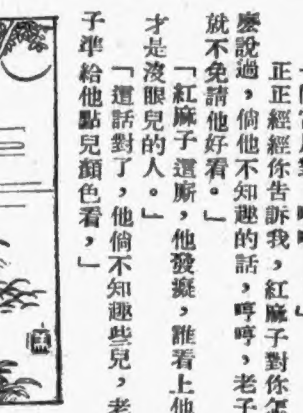 正正經經你告訴我，紅麻子對你怎
麽說過，倘他不知趣的話，哼哼，老子
就不免請他好看。」
「紅麻子這廝，他發癡，誰看上他
才是沒眼兒的人。」
「這話對了，他倘不知趣些兒，老
子準給他點兒顏色看，」